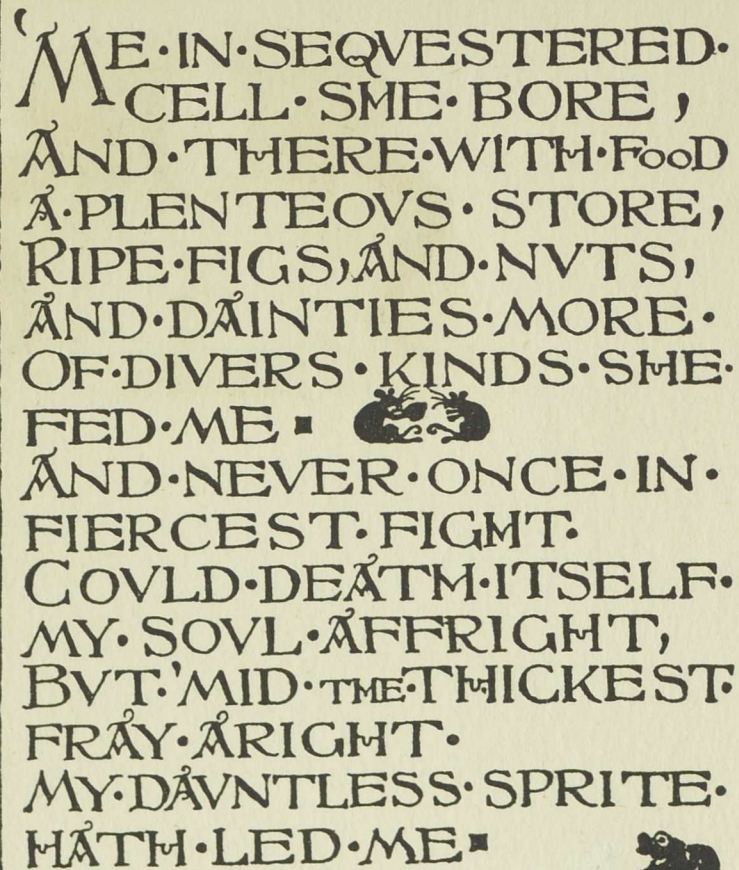 ‘ME·IN·SEQVESTERED·
CELL·SHE·BORE,
AND·THERE·WITH·FOOD
A·PLENTEOVS·STORE,
RIPE·FIGS,AND·NVTS,
AND·DAINTIES·MORE·
OF·DIVERS·KINDS·SHE·
FED·ME▪
AND·NEVER·ONCE·IN·
FIERCEST·FIGHT·
COVLD·DEATH·ITSELF·
MY·SOVL·AFFRIGHT,
BVT·'MID·THE·THICKEST·
FRAY·ARIGHT·
MY·DAVNTLESS·SPRITE·
HATH·LED·ME▪